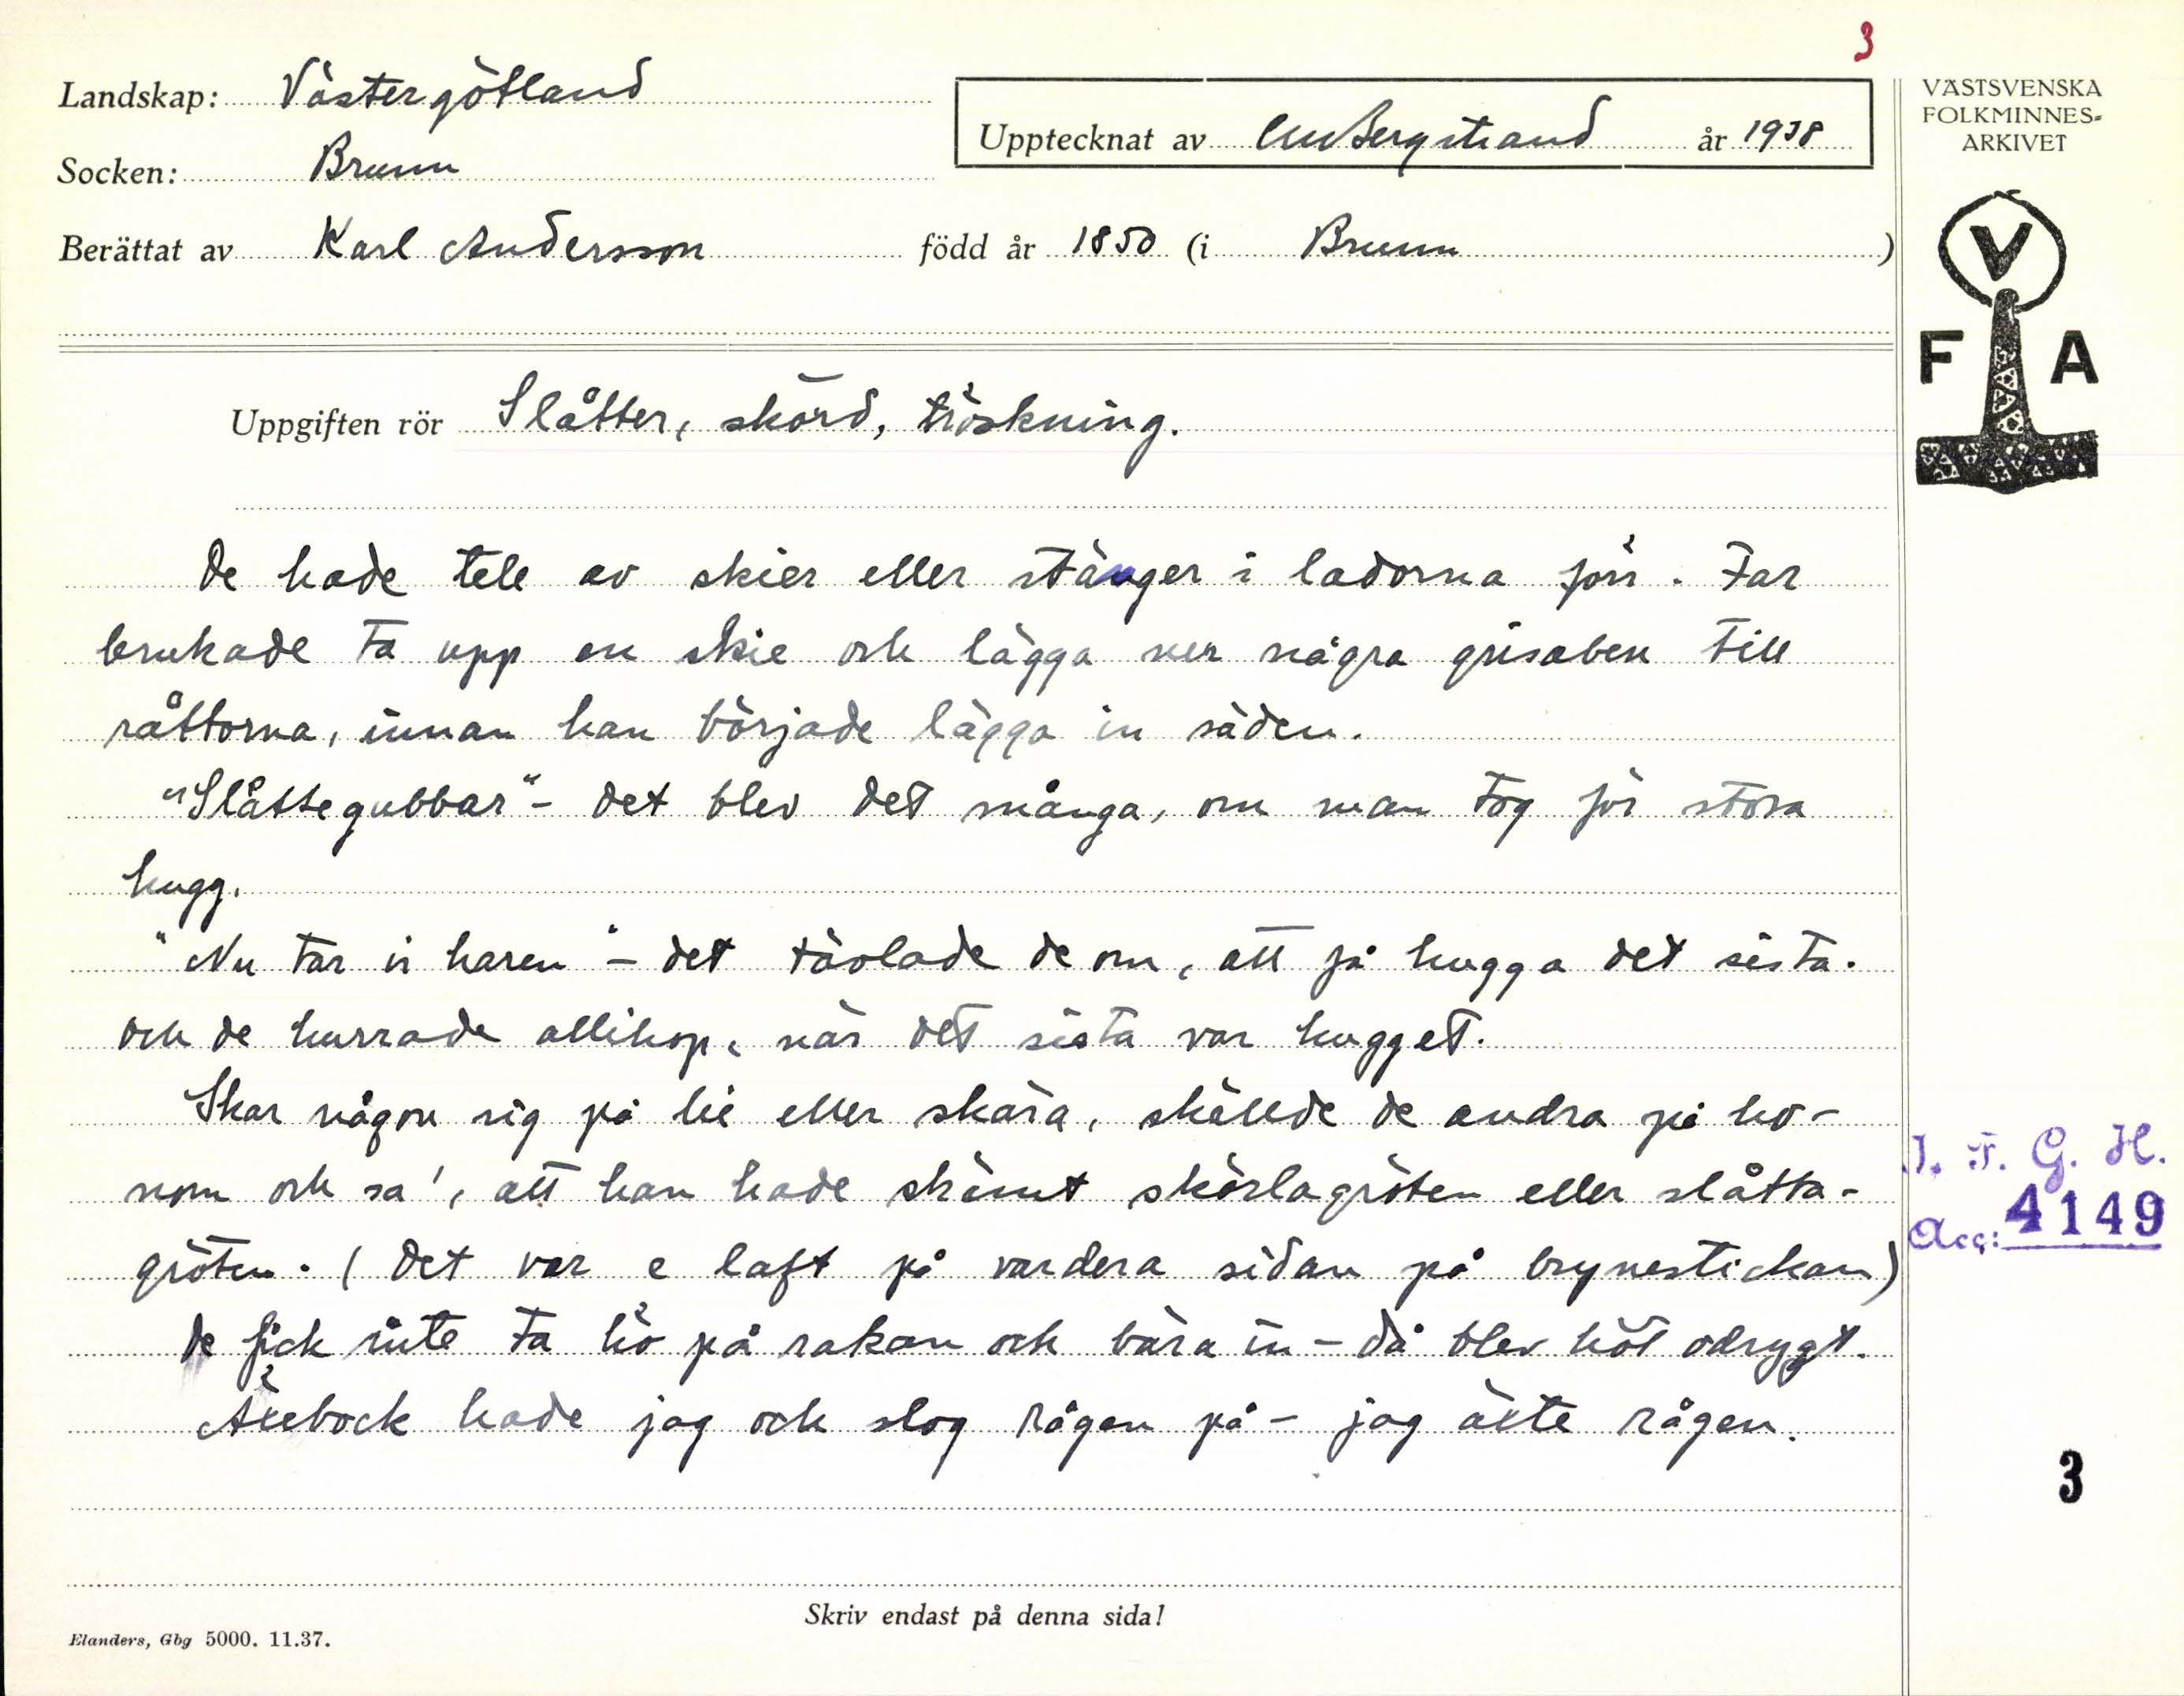 3
Landskap: Västergötland
Socken: Brunn
Upptecknat av CM Bergstrand år 1938
Berättat av Karl Andersson född år 1850 (i Brunn )
VÄSTSVENSKA
FOLKMINNES-
ARKIVET
V
F A
Uppgiften rör Slåtter, skörd, tröskning.
De hade tele av skier eller stänger i ladorna förr. Far
brukade ta upp en skie och lägga ner några grisaben till
råttorna, innan han började lägga in säden.
"Slåttegubbar" - det blev det många, om man tog för stora
hugg.
"Nu tar vi haren" - det tävlade de om, att få hugga det sista.
och de hurrade allihop, när det sista var hugget.
Skar någon sig på lie eller skära, skällde de andra på ho-
nom och sa', att han hade skämt skörlagröten eller slåtta-
gröten. (Det var e laft på vardera sidan på brynestickan)
De fick inte ta hö på rakan och bära in - då blev höt odrygt.
Axebock hade jag och slog rågen på - jag äxte rågen.
I. F. G. H.
Acc: 4149
3
Skriv endast på denna sida!
Elanders, Gbg 5000. 11.37.